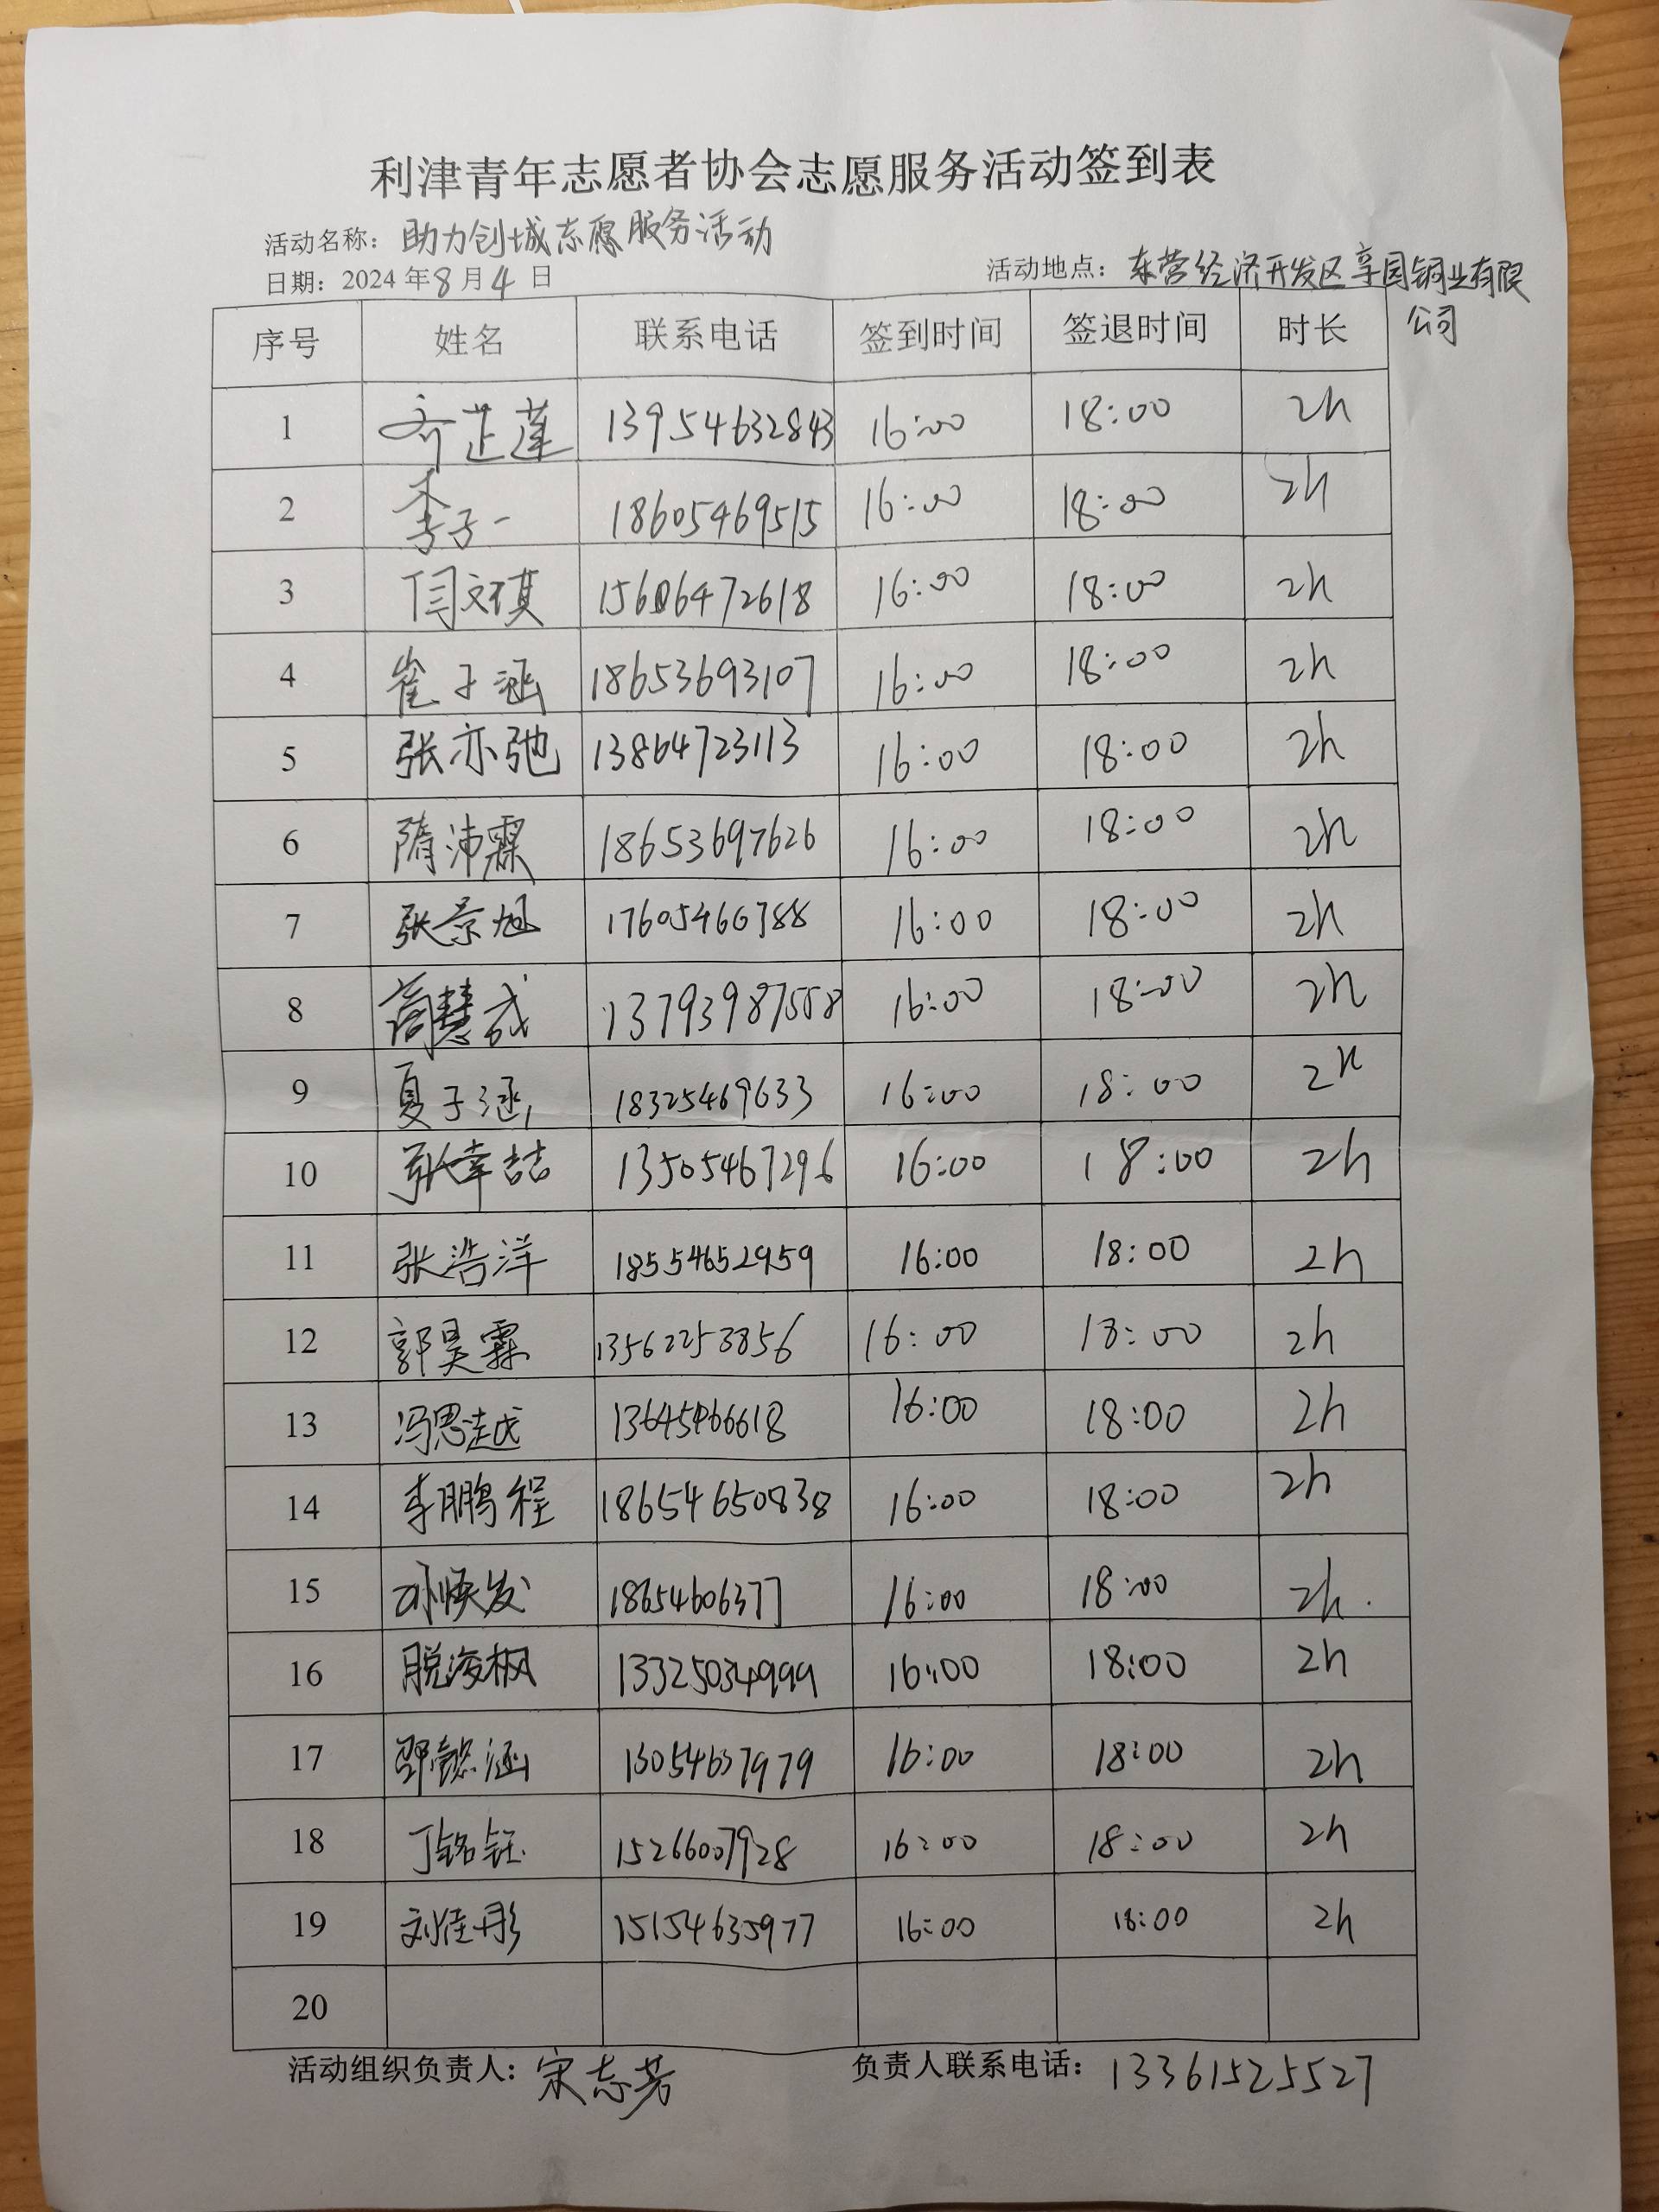 利津青年志愿者协会志愿服务活动签到表
活动名称：助力创城志愿服务活动
日期：2024年8月4日 活动地点：东营经济开发区享园铜业有限
公司
序号 姓名 联系电话 签到时间 签退时间 时长
1 齐芷莲 13954632843 16:00 18:00 2h
2 李子一 18605469515 16:00 18:00 2h
3 闫文琪 15606472618 16:00 18:00 2h
4 崔子涵 18653693107 16:00 18:00 2h
5 张亦弛 13864723113 16:00 18:00 2h
6 隋沛霖 18653697626 16:00 18:00 2h
7 张景旭 17605460788 16:00 18:00 2h
8 16:00 18:00 2h
9 夏子涵 18325469633 16:00 18:00 2h
10 13505467296 16:00 18:00 2h
11 张浩洋 18554652959 16:00 18:00 2h
12 郭昊霖 13562253856 16:00 18:00 2h
13 冯思越 13645466618 16:00 18:00 2h
14 李鹏程 18654650838 16:00 18:00 2h
15 18654606377 16:00 18:00 2h.
16 脱浚枫 13325034999 16:00 18:00 2h
17 邵懿涵 13054637979 16:00 18:00 2h
18 丁铭钰 15266007928 16:00 18:00 2h
19 刘佳彤 15154635977 16:00 18:00 2h
20
活动组织负责人：宋志芳 负责人联系电话：13361525527